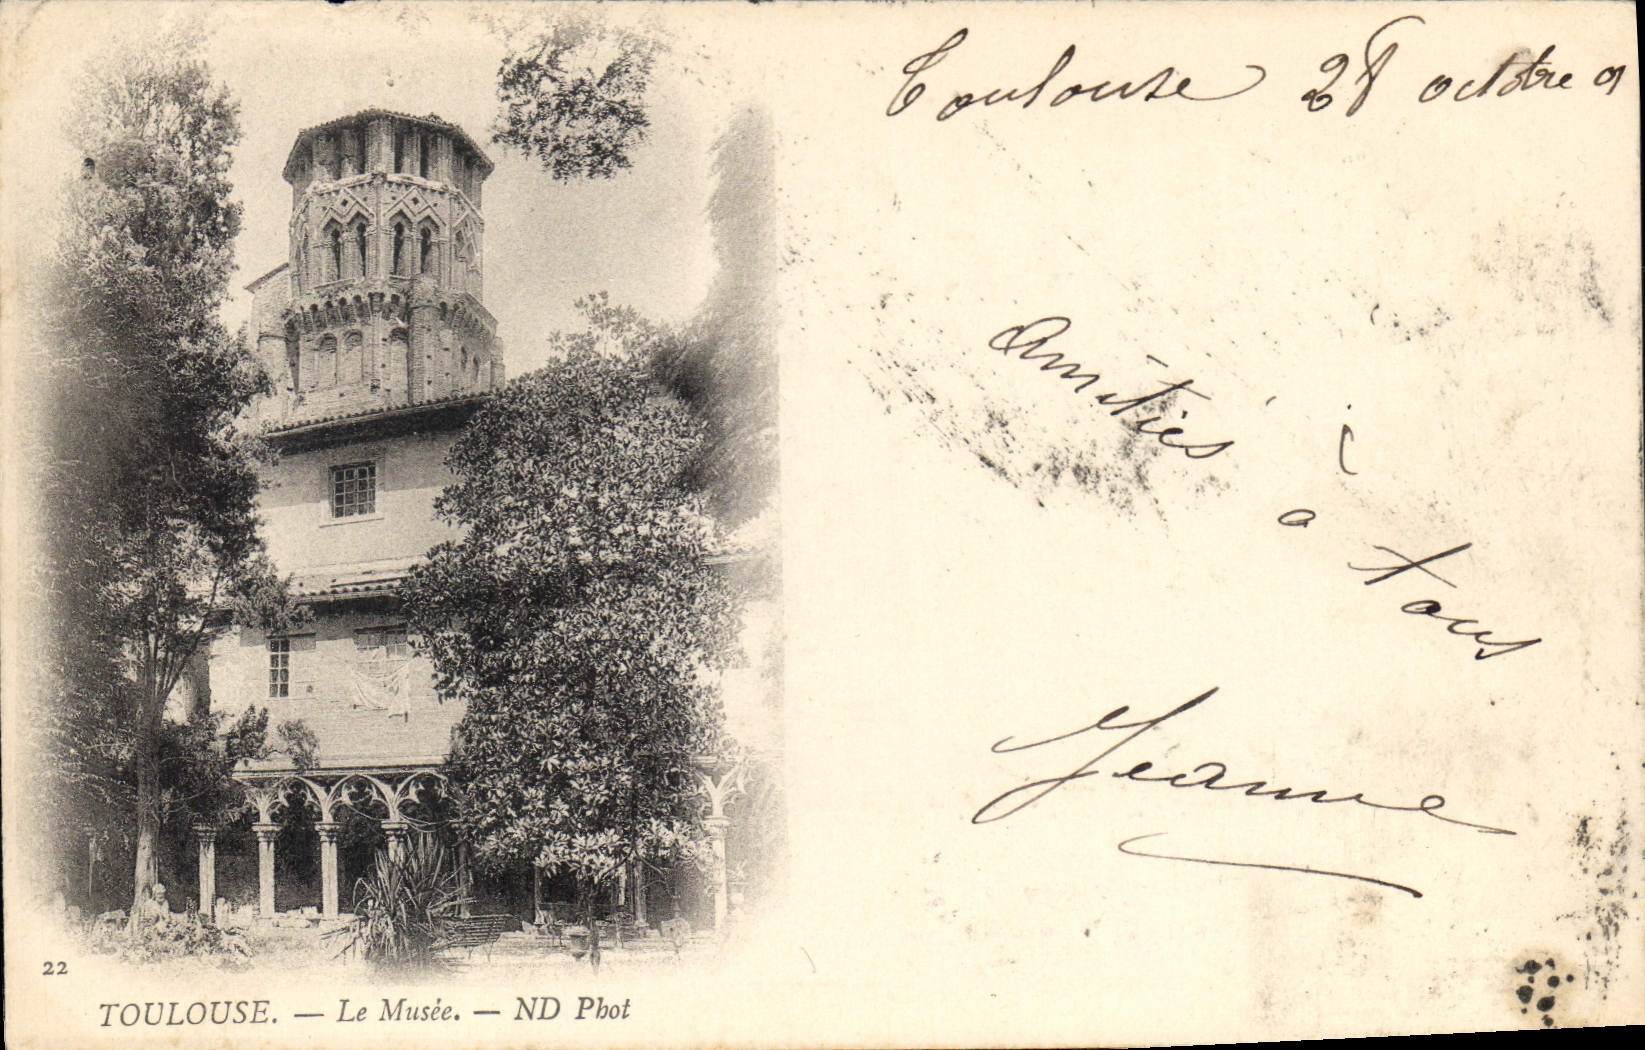 Toulouse 28 octobre 01
Amitiés à tous
Jeanne
22
TOULOUSE. — Le Musée. — ND Phot